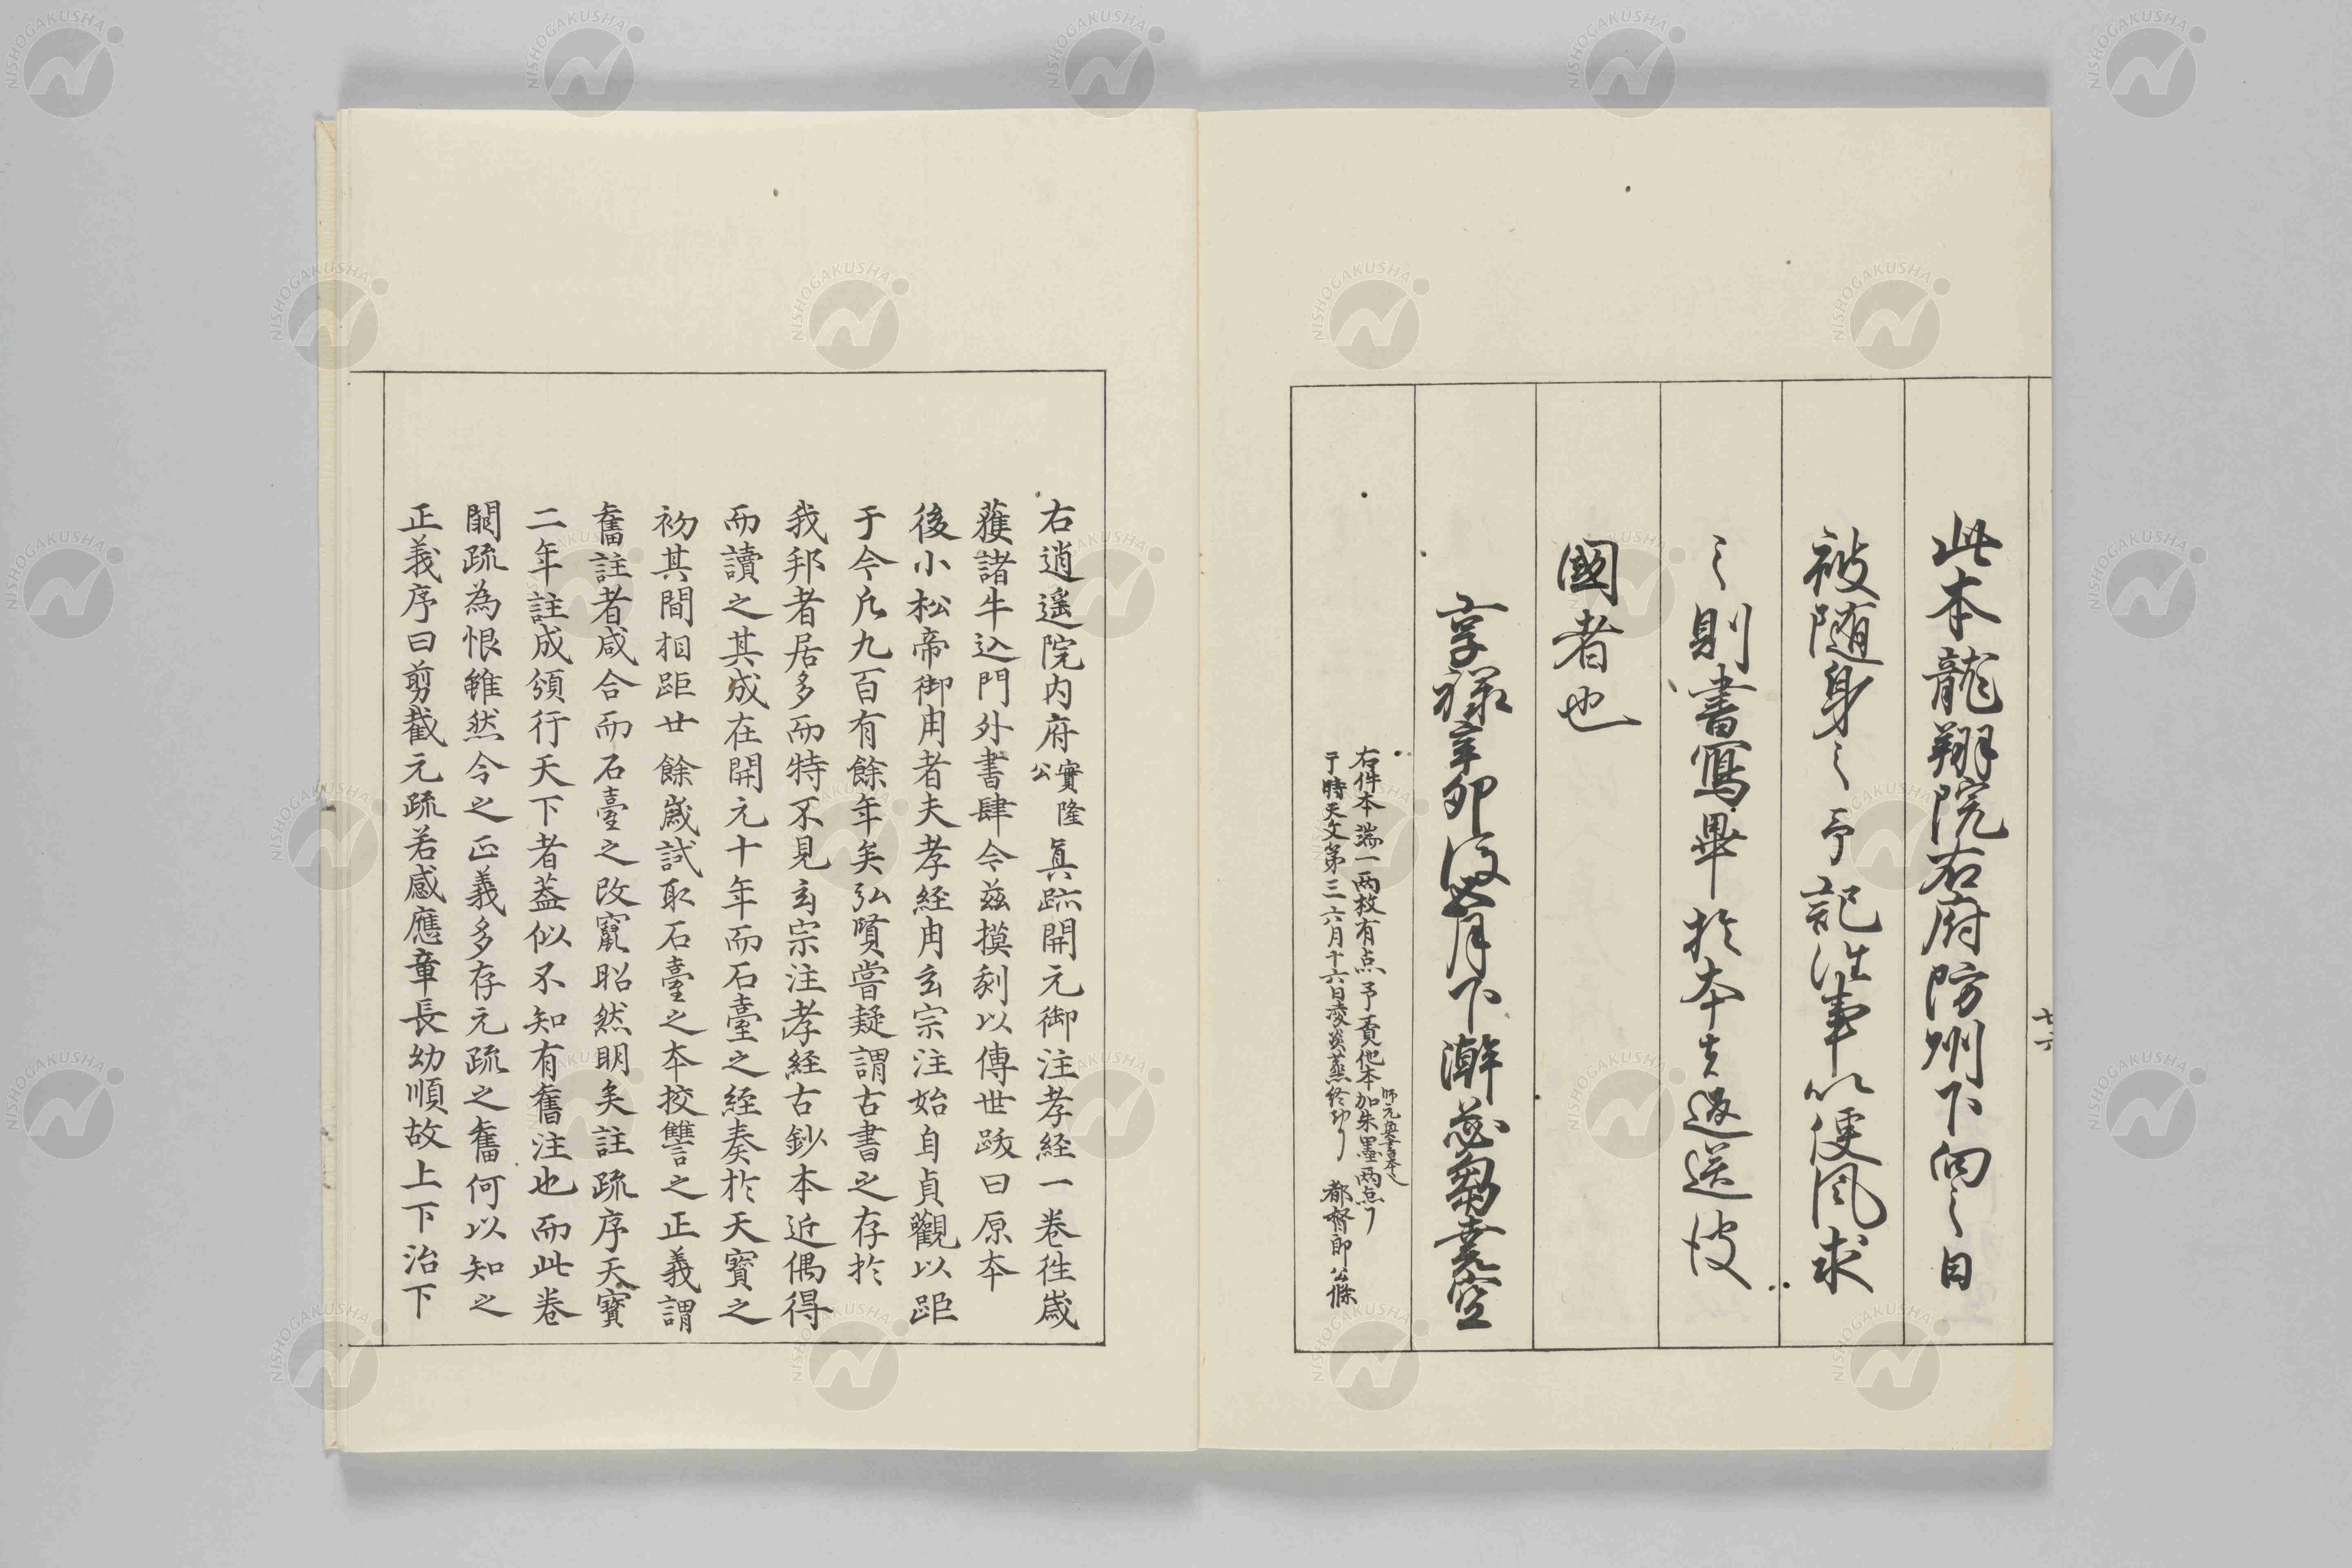 此本龍翔院右府防州下向之日
被随身之予記往事以便風求
之則書寫畢於本者返送彼
國者也
享禄辛卯後五月下澣苾蒭堯空
右件本端一両枚有点予責他本加朱墨両点了
師元奥書本也
于時天文第三六月十六日凌炎蒸終功了 都督郎公條
右逍遥院内府實隆公眞跡開元御注孝経一卷徃歳
獲諸牛込門外書肆今茲摸刻以傳世跋曰原本
後小松帝御用者夫孝経用玄宗注始自貞觀以距
于今凢九百有餘年矣弘賢嘗疑謂古書之存於
我邦者居多而特不見玄宗注孝経古鈔本近偶得
而讀之其成在開元十年而石臺之経奏於天寳之
初其間相距廿餘歳試取石臺之本挍讐之正義謂
舊註者咸合而石臺之改竄昭然明矣註疏序天寳
二年註成頒行天下者葢似不知有舊注也而此卷
闕疏為恨雖然今之正義多存元疏之舊何以知之
正義序曰剪截元疏若感應章長幼順故上下治下
NISHOGAKUSHA